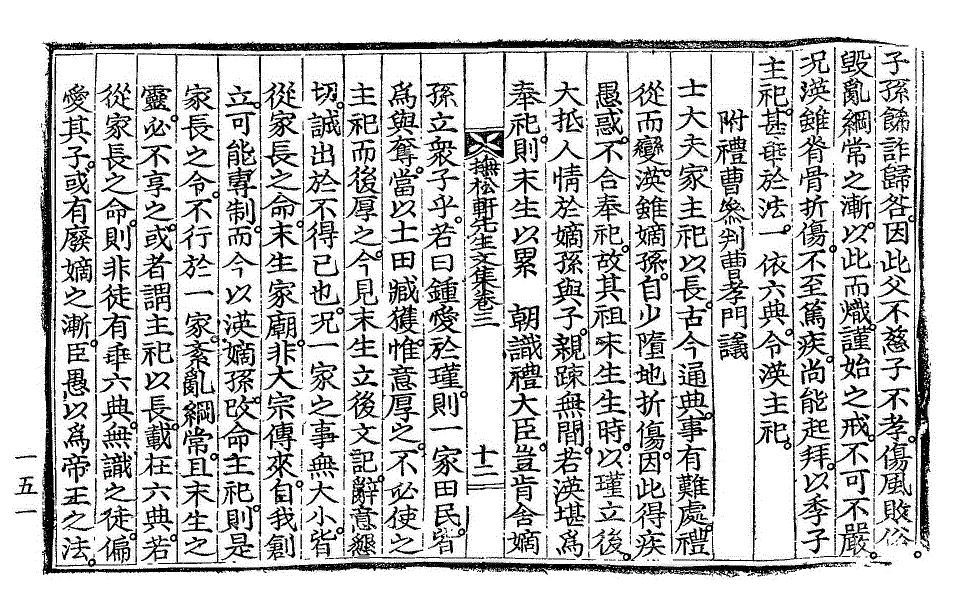 子孫餙詐歸咎。因此父不慈子不孝。傷風敗俗。
毀亂綱常之漸。以此而熾。謹始之戒。不可不嚴。
况渶雖脊骨折傷。不至篤疾。尚能起拜。以季子
主祀。甚乖於法。一依六典。令渶主祀。
附禮曹叅判曹孝門議
士大夫家主祀以長。古今通典。事有難處。禮
從而變。渶雖嫡孫。自少墮地折傷。因此得疾
愚惑。不合奉祀。故其祖末生生時。以瑾立後。
大抵人情於嫡孫與子。親踈無間。若渶堪爲
奉祀。則末生以累 朝識禮大臣。豈肯舍嫡
撫松軒先生文集卷三 十二
孫立衆子乎。若曰鍾愛於瑾。則一家田民。皆
爲與奪。當以土田臧獲。惟意厚之。不必使之
主祀而後厚之。今見末生立後文記。辭意懇
切。誠出於不得已也。况一家之事無大小。皆
從家長之命。末生家廟。非大宗傳來。自我創
立。可能專制。而今以渶嫡孫。改命主祀。則是
家長之令。不行於一家。紊亂綱常。且末生之
靈。必不享之。或者謂主祀以長。載在六典。若
從家長之命。則非徒有乖六典。無識之徒。偏
愛其子。或有廢嫡之漸。臣愚以爲帝王之法。
一五一